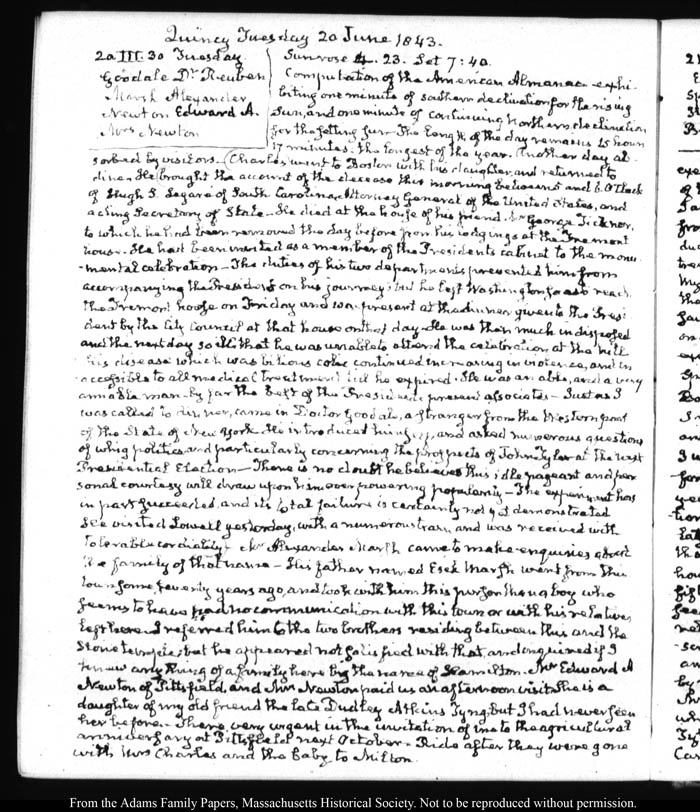 Quincy Tuesday 20 June 1843.
20. III. 30 Tuesday
Goodale Dr. Reuben
Marsh Alexander
Newton Edward A.
Mrs Newton
Sun rose 4. 23. Set 7: 40.
Computation of the American Almanac exhi-
biting one minute of southern declination for the rising
Sun, and one minute of continuing Northern declination
for the setting sun. The length of the day remains 15 hours
17 minutes. the longest of the year. Another day ab-
sorbed by visitors. Charles went to Boston with his daughter, and returned to
dine. He brought the account of the decease this morning between 5 and 6. O'Clock
of Hugh S. Legaré of South Carolina, Attorney General of the United States, and
acting Secretary of State. He died at the house of his friend George Ticknor,
to which he had been removed the day before from his lodgings at the Tremont
house. He had been invited as a member of the Presidents cabinet to the monu-
-mental celebration. The duties of his two departments prevented him from
accompanying the President on his journey; but he left Washington, so as to reach
the Tremont house on Friday and was present at the dinner given to the Presi-
dent by the City Council at that house on that day. He was then much indisposed
and the next day so ill that he was unable to attend the celebration at the hill
his disease which was bilious colic continued increasing in violence, and in-
-accessible to all medical treatment till he expired. He was an able, and a very
amiable man. by far the best of the President's present associates — Just as I
was called to dinner, came in Doctor Goodale, a stranger from the Western part
of the State of New York. He introduced himself, and asked numerous questions
of whig politics, and particularly concerning the prospects of John Tyler at the next
Presidential Election — There is no doubt he believes this idle pageant and per-
sonal courtesy will draw upon him overpowering popularity — The experiment has
in part succeeded, and its total failure is certainly not yet demonstrated
He visited Lowell yesterday, with a numerous train, and was received with
tolerable cordiality. Mr Alexander Marsh came to make enquiries about
the family of that name — His father named Esek Marsh went from this
town some seventy years ago, and took with him this person then a boy who
seems to have had no communication with this town or with his relatives
left here. I referred him to the two brothers residing between this and the
Stone temple; but he appeared not satisfied with that, and enquired if I
knew any thing of a family here by the name of Hamilton. Mr Edward A
Newton of Pittsfield, and Mrs Newton paid us an afternoon visit. She is a
daughter of my old friend the late Dudley Atkins Tyng, but I had never seen
her before. They were very urgent in the invitation of me to the agricultural
anniversary at Pittsfield next October. Ride after they were gone
with Mrs Charles and the baby to Milton.
From the Adams Family Papers, Massachusetts Historical Society. Not to be reproduced without permission.